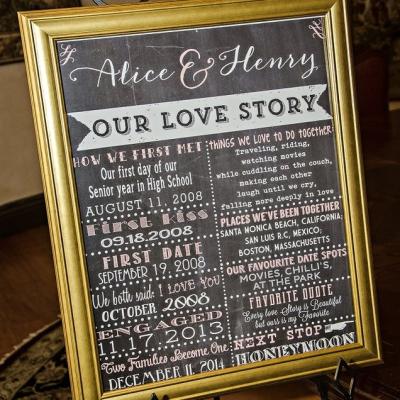 Alice & Henry
OUR LOVE STORY
HOW WE FIRST MET
Our first day of our
Senior year in High School
AUGUST 11, 2008
First Kiss
09.18.2008
FIRST DATE
SEPTEMBER 19, 2008
We both said: I LOVE YOU
OCTOBER 2008
ENGAGED
11.17.2013
Two Families Become One
DECEMBER 11, 2014
THINGS WE LOVE TO DO TOGETHER
Traveling, riding,
watching movies
while cuddling on the couch,
making each other
laugh until we cry,
falling more deeply in love
PLACES WE'VE BEEN TOGETHER
SANTA MONICA BEACH, CALIFORNIA;
SAN LUIS R.C, MEXICO;
BOSTON, MASSACHUSETTS
OUR FAVOURITE DATE SPOTS
MOVIES, CHILLI'S,
AT THE PARK
FAVORITE QUOTE
Every love Story is Beautiful
but ours is my Favorite
NEXT STOP
HONEYMOON